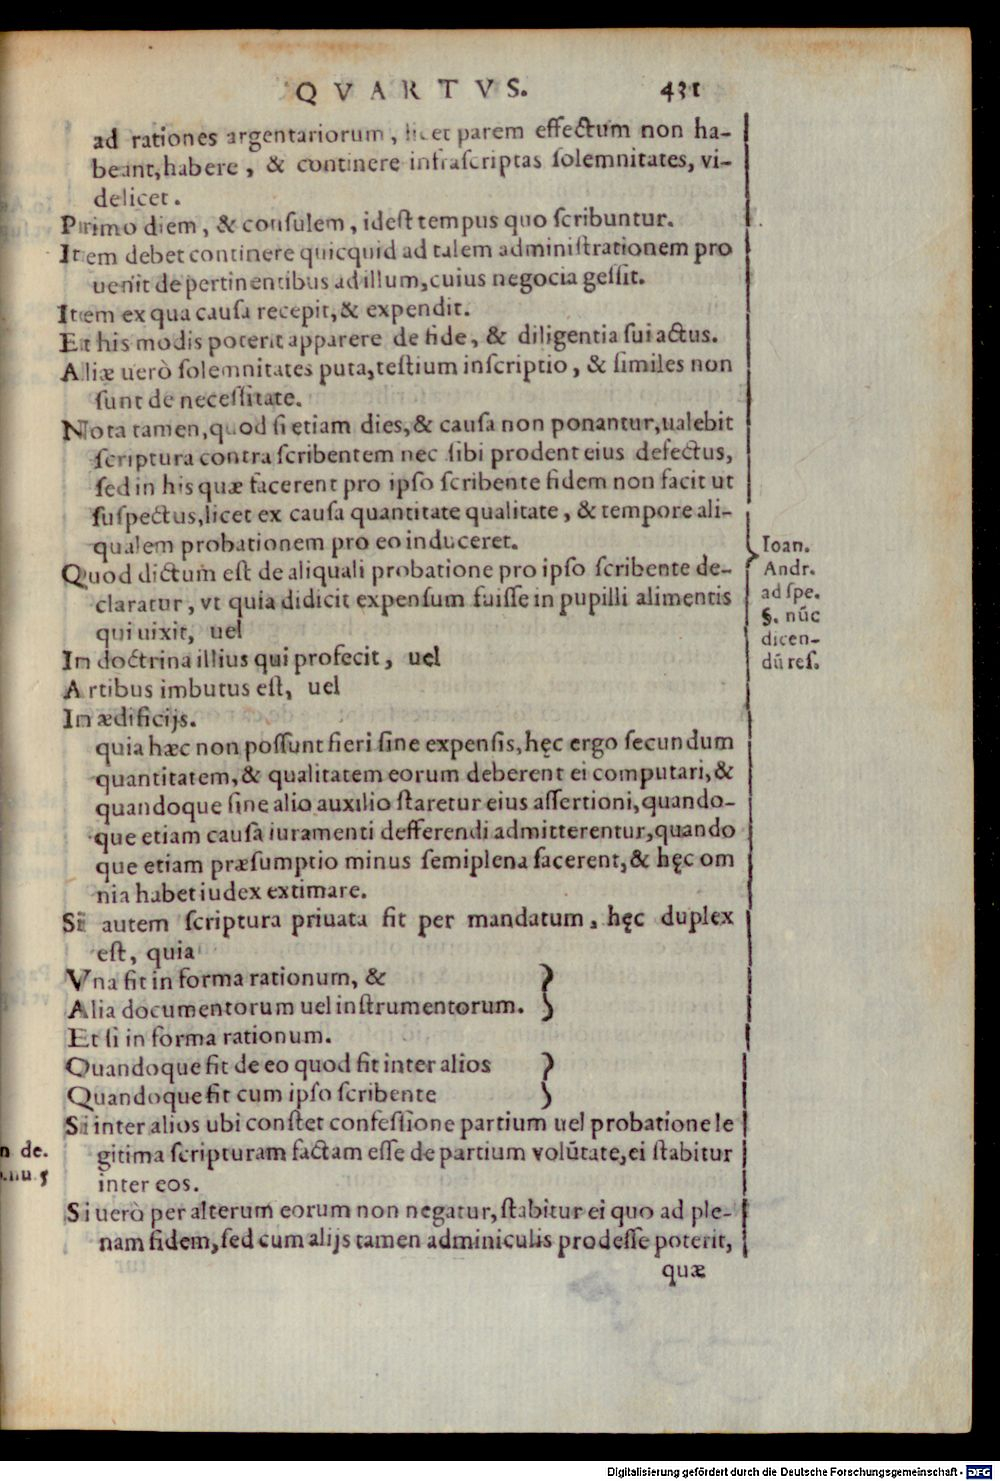 QVARTVS. 431
ad rationes argentariorum, licet parem effectum non ha-
beant, habere, & continere infrascriptas solemnitates, vi-
delicet.
Primo diem, & consulem, idest tempus quo scribuntur.
Item debet continere quicquid ad talem administrationem pro
uenit de pertinentibus ad illum, cuius negocia gessit.
Item ex qua causa recepit, & expendit.
Et his modis poterit apparere de fide, & diligentia sui actus.
Aliæ uerò solemnitates puta, testium inscriptio, & similes non
sunt de necessitate.
Nota tamen, quod si etiam dies, & causa non ponantur, ualebit
scriptura contra scribentem nec sibi prodent eius defectus,
sed in his quæ facerent pro ipso scribente fidem non facit ut
suspectus, licet ex causa quantitate qualitate, & tempore ali-
qualem probationem pro eo induceret.
Quod dictum est de aliquali probatione pro ipso scribente de-
claratur, vt quia didicit expensum fuisse in pupilli alimentis
qui uixit, uel
In doctrina illius qui profecit, uel
Artibus imbutus est, uel
In ædificijs.
quia hæc non possunt fieri sine expensis, hęc ergo secundum
quantitatem, & qualitatem eorum deberent ei computari, &
quandoque sine alio auxilio staretur eius assertioni, quando-
que etiam causa iuramenti defferendi admitterentur, quando
que etiam præsumptio minus semiplena facerent, & hęc om
nia habet iudex extimare.
Si autem scriptura priuata fit per mandatum, hęc duplex
est, quia
Vna fit in forma rationum, &
Alia documentorum uel instrumentorum.
Et si in forma rationum.
Quandoque fit de eo quod fit inter alios
Quandoque fit cum ipso scribente
Si inter alios ubi constet confessione partium uel probatione le
gitima scripturam factam esse de partium volūtate, ei stabitur
inter eos.
Si uerò per alterum eorum non negatur, stabitur ei quo ad ple-
nam fidem, sed cum alijs tamen adminiculis prodesse poterit,
quæ
Ioan.
Andr.
ad spe.
§. nūc
dicen-
dū res.
n de.
nu 5
Digitalisierung gefördert durch die Deutsche Forschungsgemeinschaft - DFG